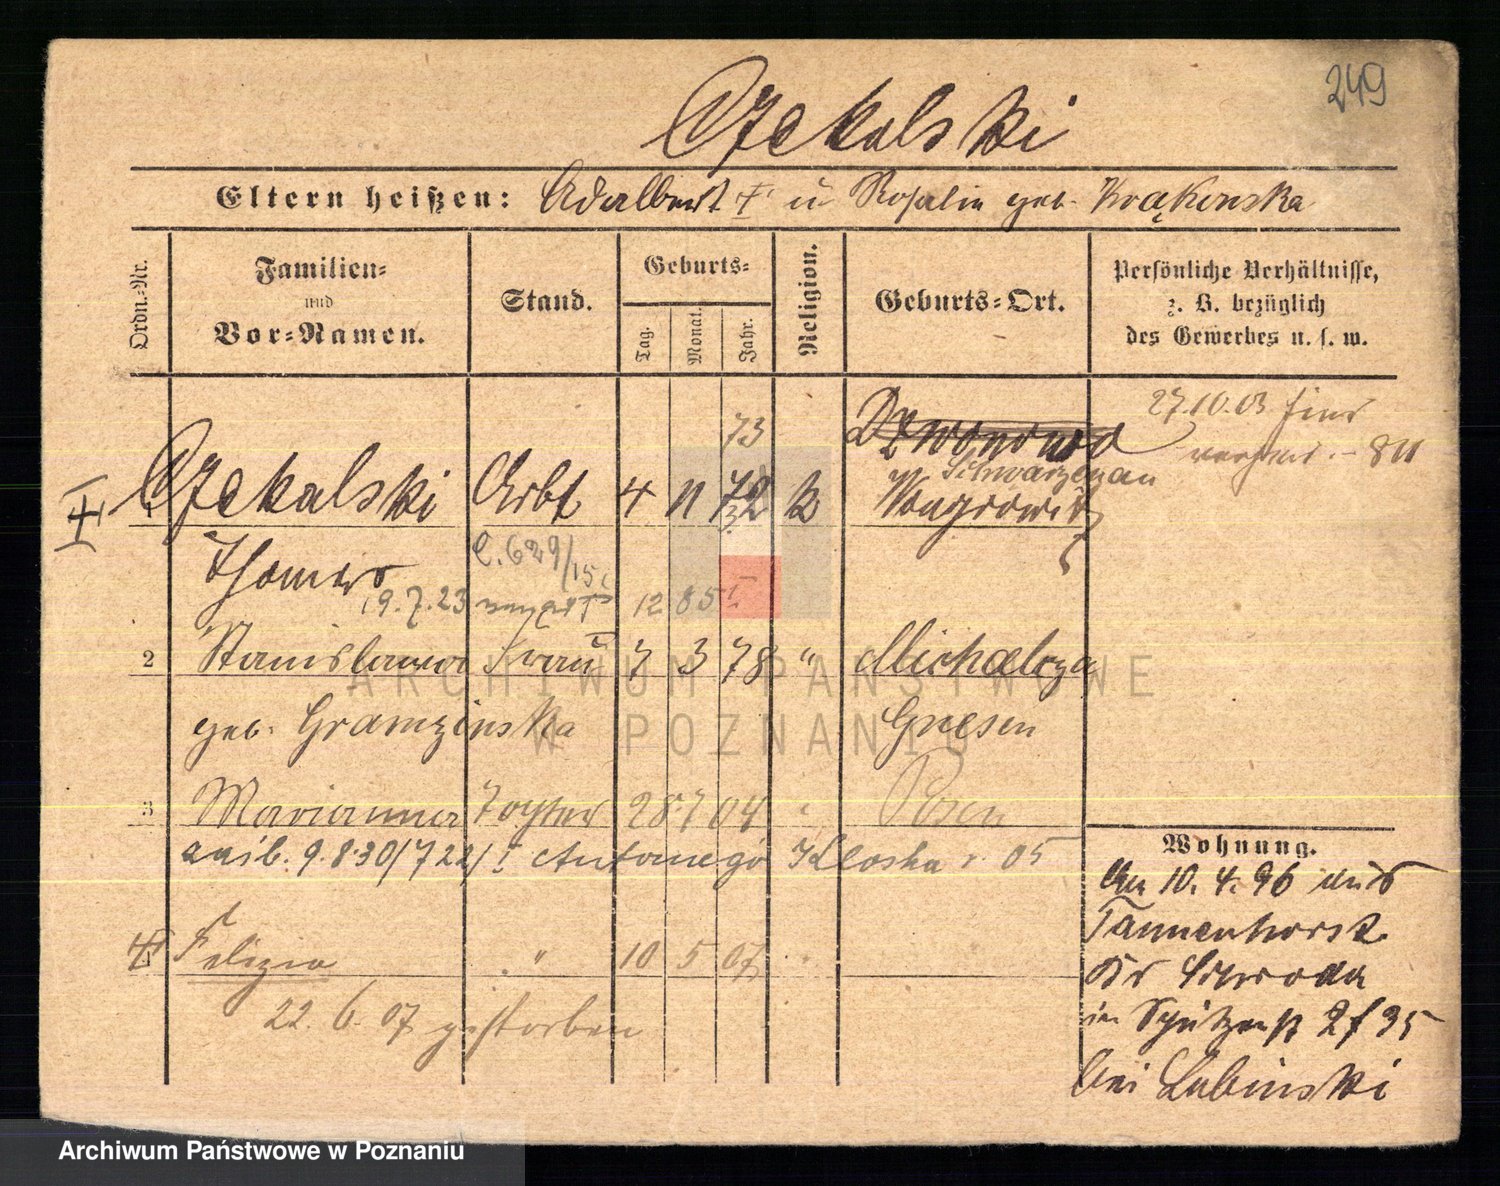 249
Czekalski
Eltern heißen: Adalbert † u Rosalie geb. Krąkowska
Ordn.-Nr.
Familien- und Vor-Namen.
Stand.
Geburts-
Tag.
Monat.
Jahr.
Religion.
Geburts-Ort.
Persönliche Verhältnisse, z. B. bezüglich des Gewerbes u. s. w.
27.10.03
811
73
Dzwonowo
Schwarzenau
Czekalski Arbt 4 11 72 k Wongrowitz
Thomas
19.7.23 12 85 I
2 Stanislawa Frau 7 3 78 " Michalcza
geb. Gramzinska Gnesen
3 Marianna Tochter 28 7 04 " Posen
9.8.30/722/I Antoniego Kloska r. 05
Felizia " 10 5 07
22. 6. 07 gestorben
Wohnung.
Am 10. 4. 96 aus
Tannenhorst
Kr Schroda
in 2 f 35
bei Lubinski
ARCHIWUM PAŃSTWOWE
W POZNANIU
Archiwum Państwowe w Poznaniu